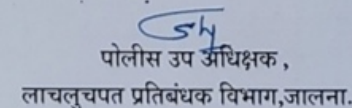 पोलीस उप अधिक्षक,
लाचलुचपत प्रतिबंधक विभाग,जालना.